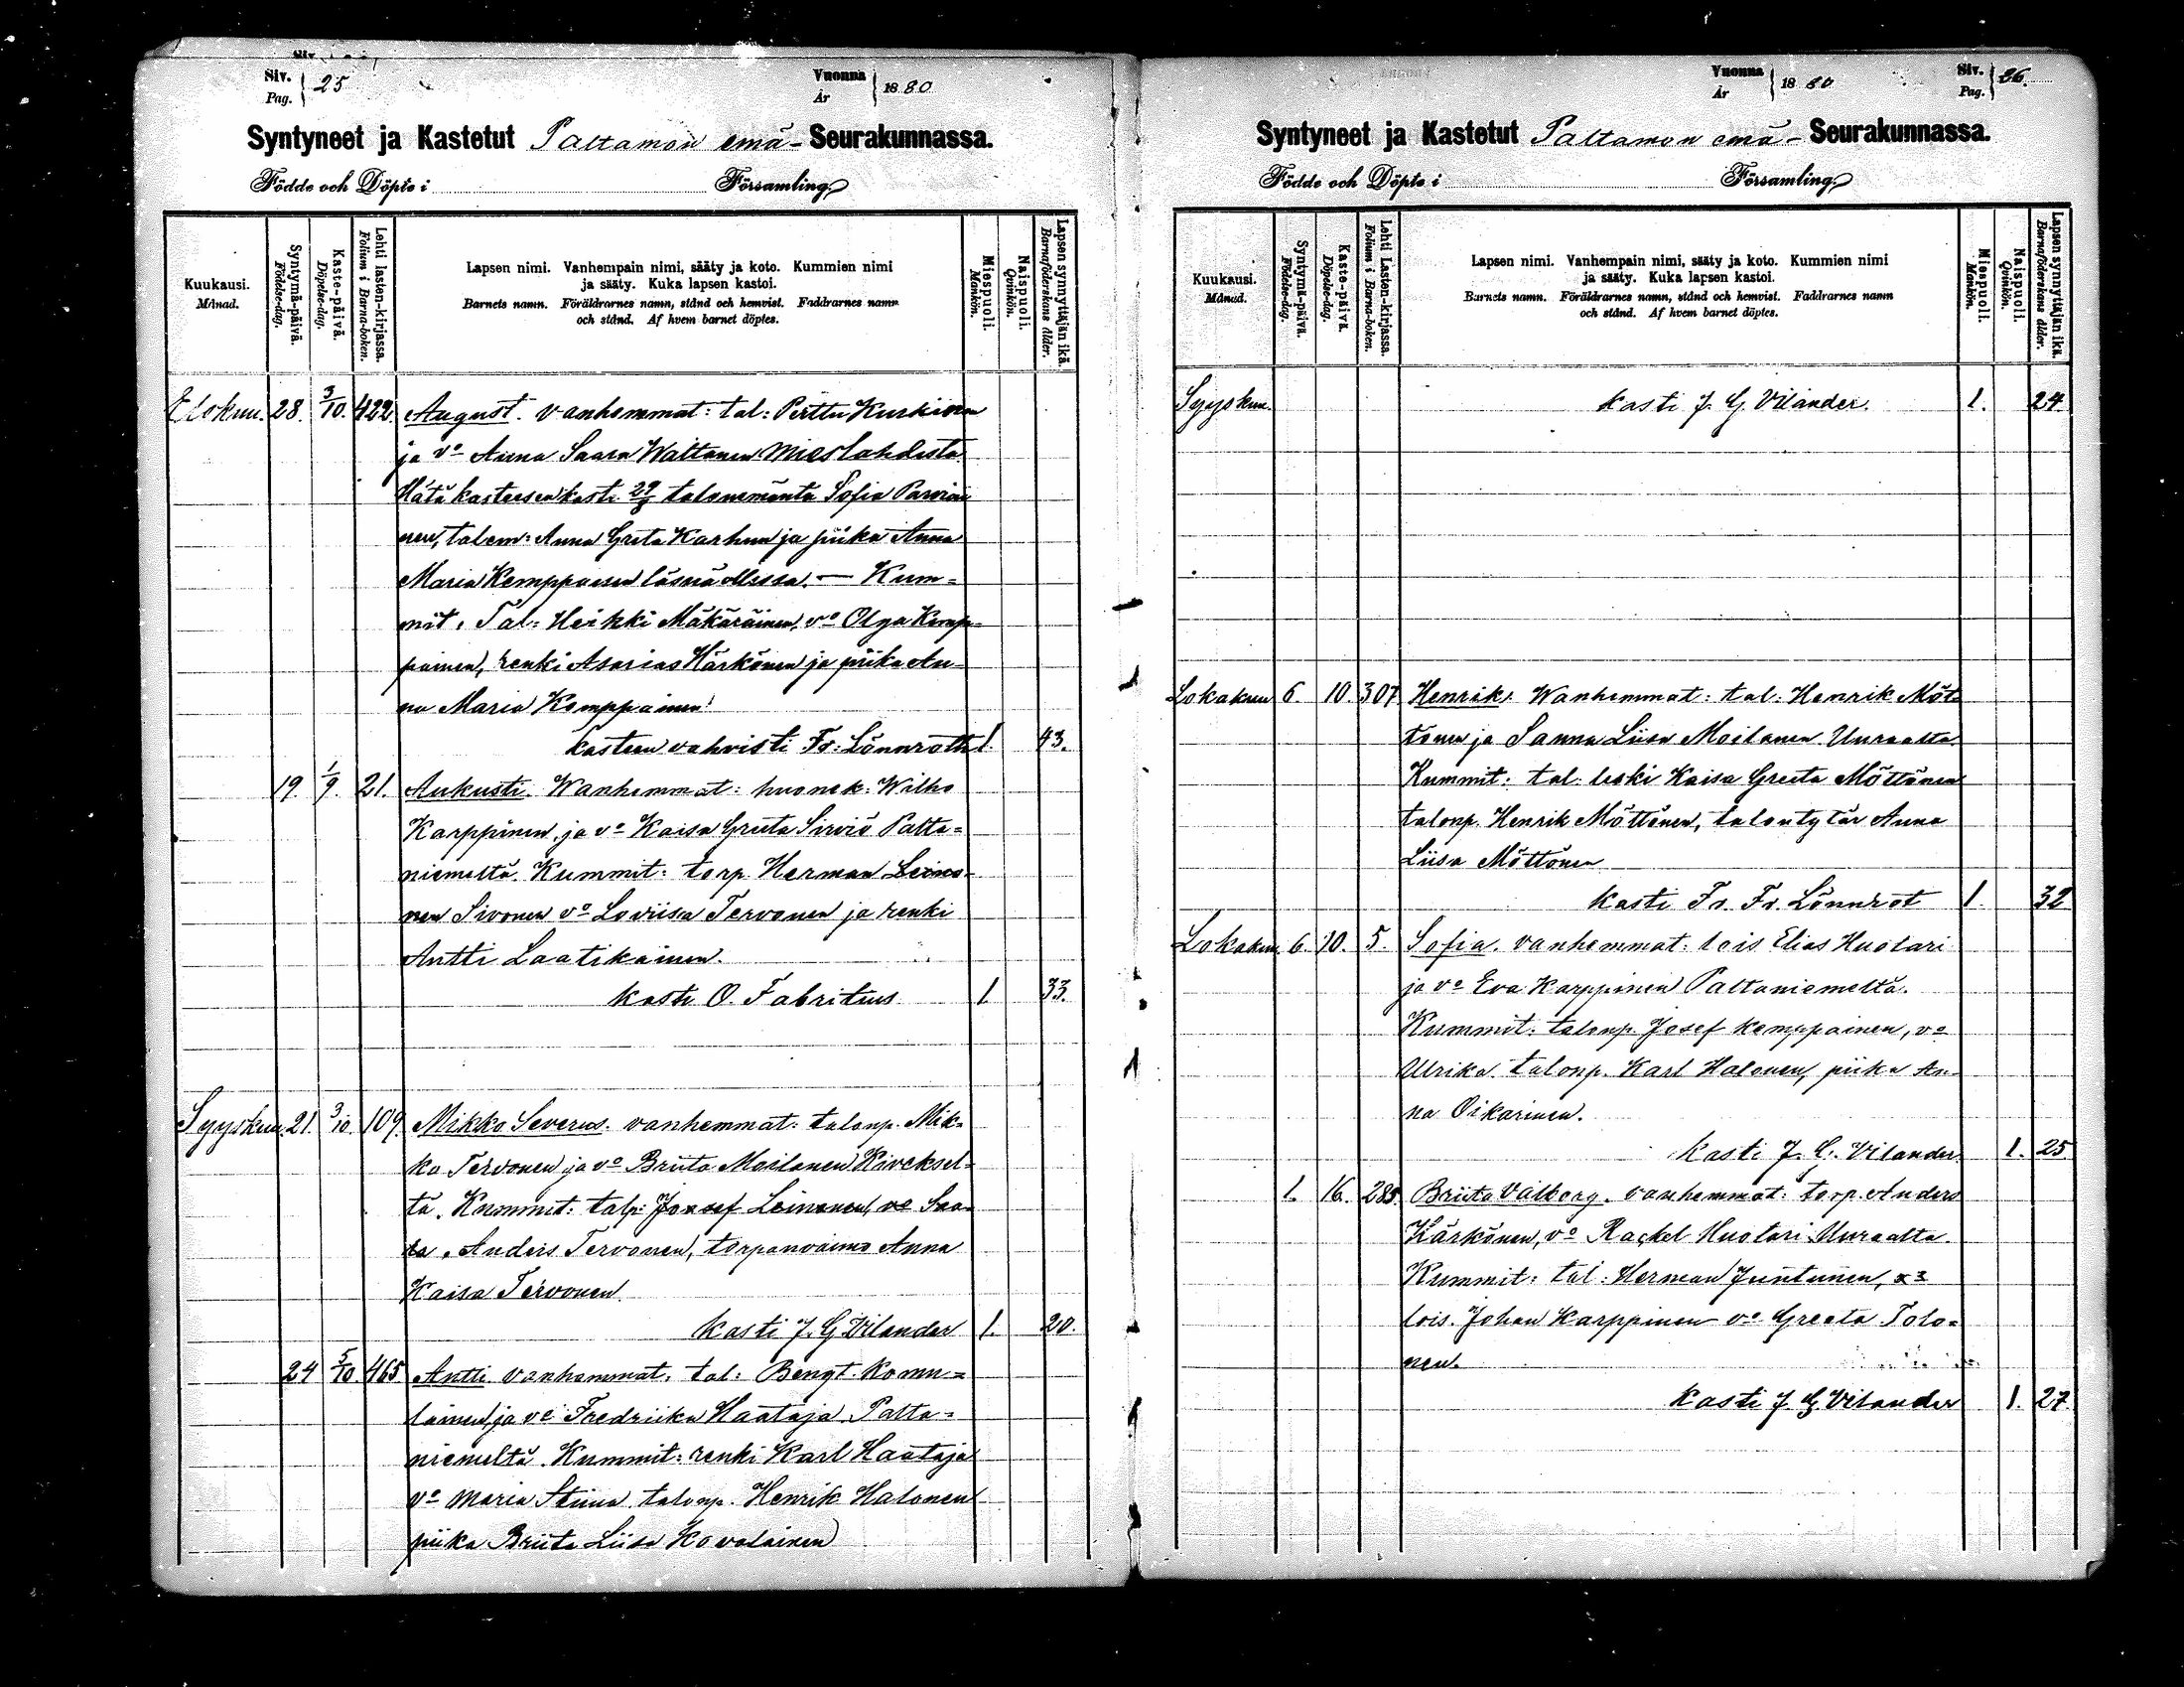 Siv.
Pag. 25
Vuonna
År 1880
Syntyneet ja Kastetut Paltamon emä- Seurakunnassa.
Födde och Döpte i Församling
Kuukausi.
Månad.
Syntymä-päivä.
Födelse-dag.
Kaste-päivä.
Döpelse-dag.
Lehti lasten-kirjassa.
Folium i Barna-boken.
Lapsen nimi. Vanhempain nimi, sääty ja koto. Kummien nimi
ja sääty. Kuka lapsen kastoi.
Barnets namn. Föräldrarnes namn, stånd och hemvist. Faddrarnes namn
och stånd. Af hvem barnet döptes.
Miespuoli.
Mankön.
Naispuoli.
Qvinkön.
Lapsen synnyttäjän ikä.
Barnaföderskans ålder.
Elokuu. 28. 3/10. 422. August. vanhemmat: tal: Perttu Kurkinen
ja vo Anna Saara Waltanen Mieslahdesta
Hätä kasteesen kasti 29/8 talonemäntä Sofia Parviai
nen, talem: Anna Greta Karhun ja piika Anna
Maria Kemppainen läsnä ollessa. — Kum=
mit, Tal: Heikki Mäkäräinen, vo Olga Kemp=
painen, renki Asarias Härkönen ja piika An=
na Maria Kemppainen
kasteen vahvisti Fr: Lönnroth 1. 43.
19. 1/9. 21. Aukusti. Wanhemmat: huonek: Wilho
Karppinen, ja vo Kaisa Greeta Sirviö Palta=
niemeltä. Kummit: torp. Herman Leino=
nen Sivonen vo Loviisa Tervonen ja renki
Antti Laatikainen.
kasti O. Fabritius 1 33.
Syyskuu. 21. 3/10. 109. Mikko Severus. vanhemmat: talonp. Mik=
ko Tervonen ja vo Briita Moilanen Kiveksel=
tä. Kummit: talp: Joosef Leinonen, vo Saa=
ra, Anders Tervonen, torpanvaimo Anna
Kaisa Tervonen
kasti J. G Vilander 1. 20.
24 5/10. 465 Antti vanhemmat: tal: Bengt Komu=
lainen ja vo Fredriika Haataja Palta=
niemeltä. Kummit: renki Karl Haataja
vo Maria Stiina talonp. Henrik Halonen
piika Briita Liisa Kovalainen
Vuonna
År 1880
Siv.
Pag. 26.
Syntyneet ja Kastetut Paltamon emä- Seurakunnassa.
Födde och Döpte i Församling
Kuukausi.
Månad.
Syntymä-päivä.
Födelse-dag.
Kaste-päivä.
Döpelse-dag.
Lehti Lasten-kirjassa.
Folium i Barna-boken.
Lapsen nimi. Vanhempain nimi, sääty ja koto. Kummien nimi
ja sääty. Kuka lapsen kastoi.
Barnets namn. Föräldrarnes namn, stånd och hemvist. Faddrarnes namn
och stånd. Af hvem barnet döptes.
Miespuoli.
Mankön.
Naispuoli.
Qvinkön.
Lapsen synnyttäjän ikä.
Barnaföderskans ålder.
Syyskuu. kasti J. G. Vilander. 1. 24.
Lokakuu 6. 10. 307 Henrik. Wanhemmat: tal: Henrik Möt=
tönen ja Sanna Liisa Moilanen Uuraalta.
Kummit: tal: leski Kaisa Greeta Möttönen
talonp. Henrik Möttönen, talontytär Anna
Liisa Möttönen
kasti Fr. Fr. Lönnrot 1. 32
Lokakuu. 6. 10. 5. Sofia. vanhemmat: lois Elias Huotari
ja vo Eva Karppinen Paltaniemeltä.
Kummit: talonp. Josef Kemppainen, vo
Ulrika. talonp. Karl Halonen, piika An=
na Oikarinen.
kasti J. G. Vilander. 1. 25.
1. 16. 285. Briita Valborg. vanhemmat: torp. Anders
Kärkönen, vo Rackel Huotari Uuraalta.
Kummit: tal: Herman Juntunen,
lois. Johan Karppinen vo Greeta Tolo=
nen.
kasti J. G Vilander 1. 27